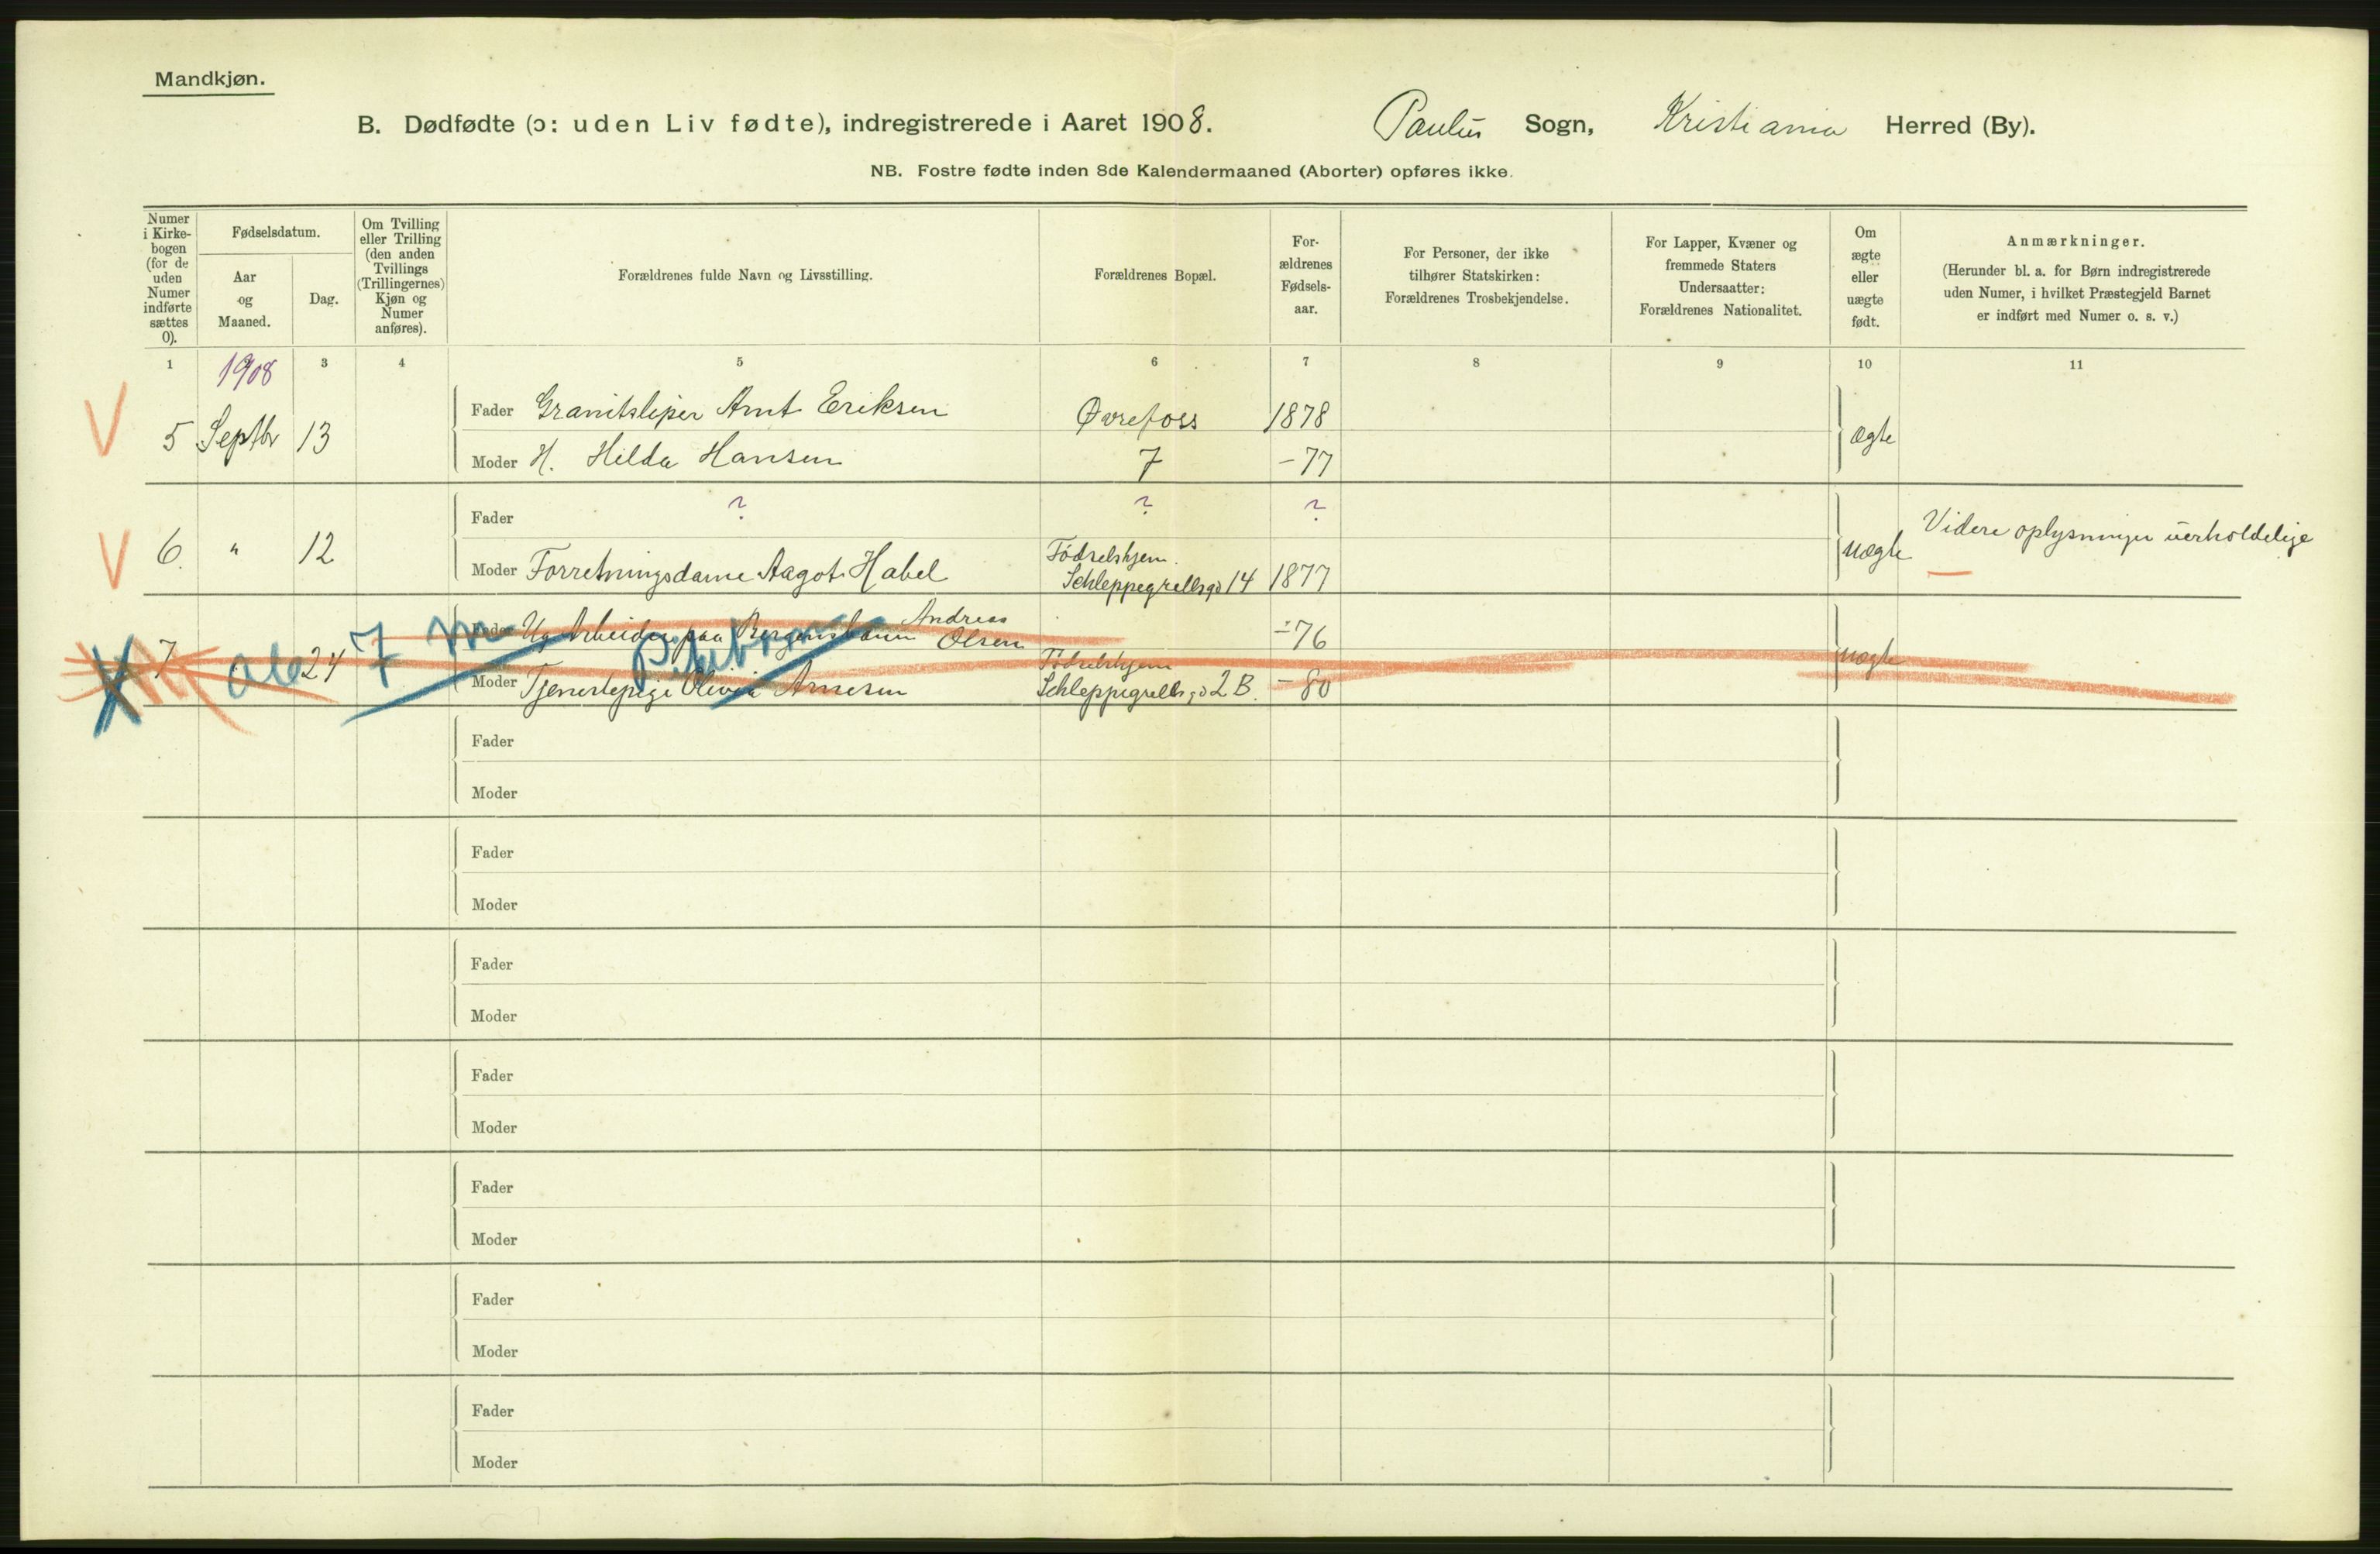 Mandkjøn.
B. Dødfødte (ɔ: uden Liv fødte), indregistrerede i Aaret 1908. Paulus Sogn, Kristiania Herred (By).
NB. Fostre fødte inden 8de Kalendermaaned (Aborter) opføres ikke.
Numer i Kirke-bogen (for de uden Numer indførte sættes 0).
Fødselsdatum.
Aar og Maaned.
Dag.
Om Tvilling eller Trilling (den anden Tvillings (Trillingernes) Kjøn og Numer anføres).
Forældrenes fulde Navn og Livsstilling.
Forældrenes Bopæl.
For-ældrenes Fødsels-aar.
For Personer, der ikke tilhører Statskirken: Forældrenes Trosbekjendelse.
For Lapper, Kvæner og fremmede Staters Undersaatter: Forældrenes Nationalitet.
Om ægte eller uægte født.
Anmærkninger.
(Herunder bl. a. for Børn indregistrerede uden Numer, i hvilket Præstegjeld Barnet er indført med Numer o. s. v.)
1 3 4 5 6 7 8 9 10 11
1908
V 5 Septbr 13
Fader Granitsliper Arnt Eriksen Øvrefoss 1878
Moder H. Hilda Hansen 7 - 77
ægte
V 6. " 12
Fader ? ? ?
Moder Forretningsdame Aagot Habel Fødselshjem. Schleppegrellsgd 14 1877
uægte
Videre oplysninger uerholdelige
7 24 7 m
Fader Ug Arbeider paa Bergensbanen Andreas Olsen - 76
Moder Tjenestepige Olivia Arnesen Fødselshjem Schleppegrellsgd 2 B. - 80
uægte
Fader
Moder
Fader
Moder
Fader
Moder
Fader
Moder
Fader
Moder
Fader
Moder
Fader
Moder